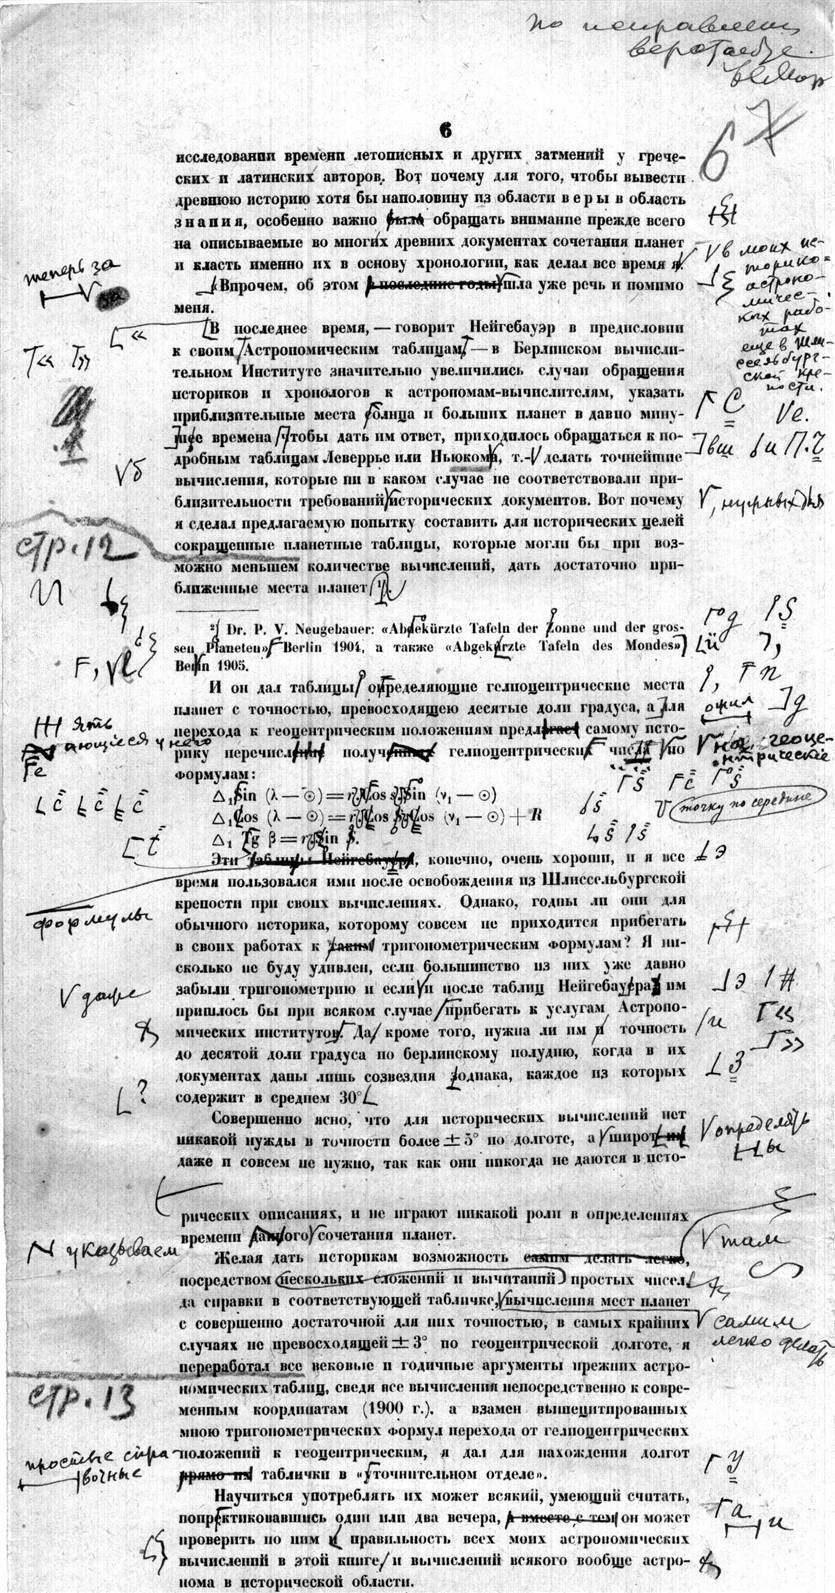 по исправлении
6
6
исследовании времени летописных и других затмений у грече-
ских и латинских авторов. Вот почему для того, чтобы вывести
древнюю историю хотя бы наполовину из области веры в область
знания, особенно важно было обращать внимание прежде всего
на описываемые во многих древних документах сочетания планет
и класть именно их в основу хронологии, как делал все время я.
в моих ис-
торико-
астроно-
мичес-
ких рабо-
тах
еще в Шли-
ссельбург-
ской кре-
пости.
теперь за
Впрочем, об этом в последние годы шла уже речь и помимо
меня.
В последнее время, — говорит Нейгебауэр в предисловии
к своим Астрономическим таблицам, — в Берлинском вычисли-
тельном Институте значительно увеличились случаи обращения
историков и хронологов к астрономам-вычислителям, указать
приблизительные места солнца и больших планет в давно мину-
щие времена. Чтобы дать им ответ, приходилось обращаться к по-
дробным таблицам Леверрье или Ньюкома, т.- делать точнейшие
вычисления, которые ни в каком случае не соответствовали при-
близительности требований исторических документов. Вот почему
я сделал предлагаемую попытку составить для исторических целей
сокращенные планетные таблицы, которые могли бы при воз-
можно меньшем количестве вычислений, дать достаточно при-
ближенные места планет 1).
стр. 12
Dr. P. V. Neugebauer: «Abgekürzte Tafeln der Zonne und der gros-
sen Planeten», Berlin 1904, а также «Abgekürzte Tafeln des Mondes»
Berlin 1905.
И он дал таблицы, определяющие гелиоцентрические места
планет с точностью, превосходящею десятые доли градуса, а для
перехода к геоцентрическим положениям предлагает самому исто-
рику перечислить полученные гелиоцентрические числа по
формулам:
ять
ающиеся у него
геоце-
нтрические
точку по середине
Δ₁ Sin (λ — ☉) = r Cos Sin (ν₁ — ☉)
Δ₁ Cos (λ — ☉) = r Cos Cos (ν₁ — ☉) + R
Δ₁ Tg β = r Sin
Эти таблицы Нейгебауера, конечно, очень хороши, и я все
время пользовался ими после освобождения из Шлиссельбургской
крепости при своих вычислениях. Однако, годны ли они для
обычного историка, которому совсем не приходится прибегать
в своих работах к таким тригонометрическим формулам? Я ни-
сколько не буду удивлен, если большинство из них уже давно
забыли тригонометрию и если и после таблиц Нейгебауера им
пришлось бы при всяком случае прибегать к услугам Астроно-
мических институтов. Да кроме того, нужна ли им и точность
до десятой доли градуса по берлинскому полудню, когда в их
документах даны лишь созвездия зодиака, каждое из которых
содержит в среднем 30°
формулы
даже
Совершенно ясно, что для исторических вычислений нет
никакой нужды в точности более ± 5° по долготе, а широт
даже и совсем не нужно, так как они никогда не даются в исто-
определять
рических описаниях, и не играют никакой роли в определениях
времени данного сочетания планет.
там
указываем
Желая дать историкам возможность самим делать легко,
посредством нескольких сложений и вычитаний простых чисел
да справки в соответствующей табличке, вычисления мест планет
с совершенно достаточной для них точностью, в самых крайних
случаях не превосходящей ± 3° по геоцентрической долготе, я
переработал все вековые и годичные аргументы прежних астро-
номических таблиц, сведя все вычисления непосредственно к совре-
менным координатам (1900 г.), а взамен вышецитированных
мною тригонометрических формул перехода от гелиоцентрических
положений к геоцентрическим, я дал для нахождения долгот
прямо их таблички в «уточнительном отделе».
самим
легко делать
стр. 13
простые спра-
вочные
Научиться употреблять их может всякий, умеющий считать,
попрактиковавшись один или два вечера, а вместе с тем он может
проверить по ним и правильность всех моих астрономических
вычислений в этой книге и вычислений всякого вообще астро-
нома в исторической области.